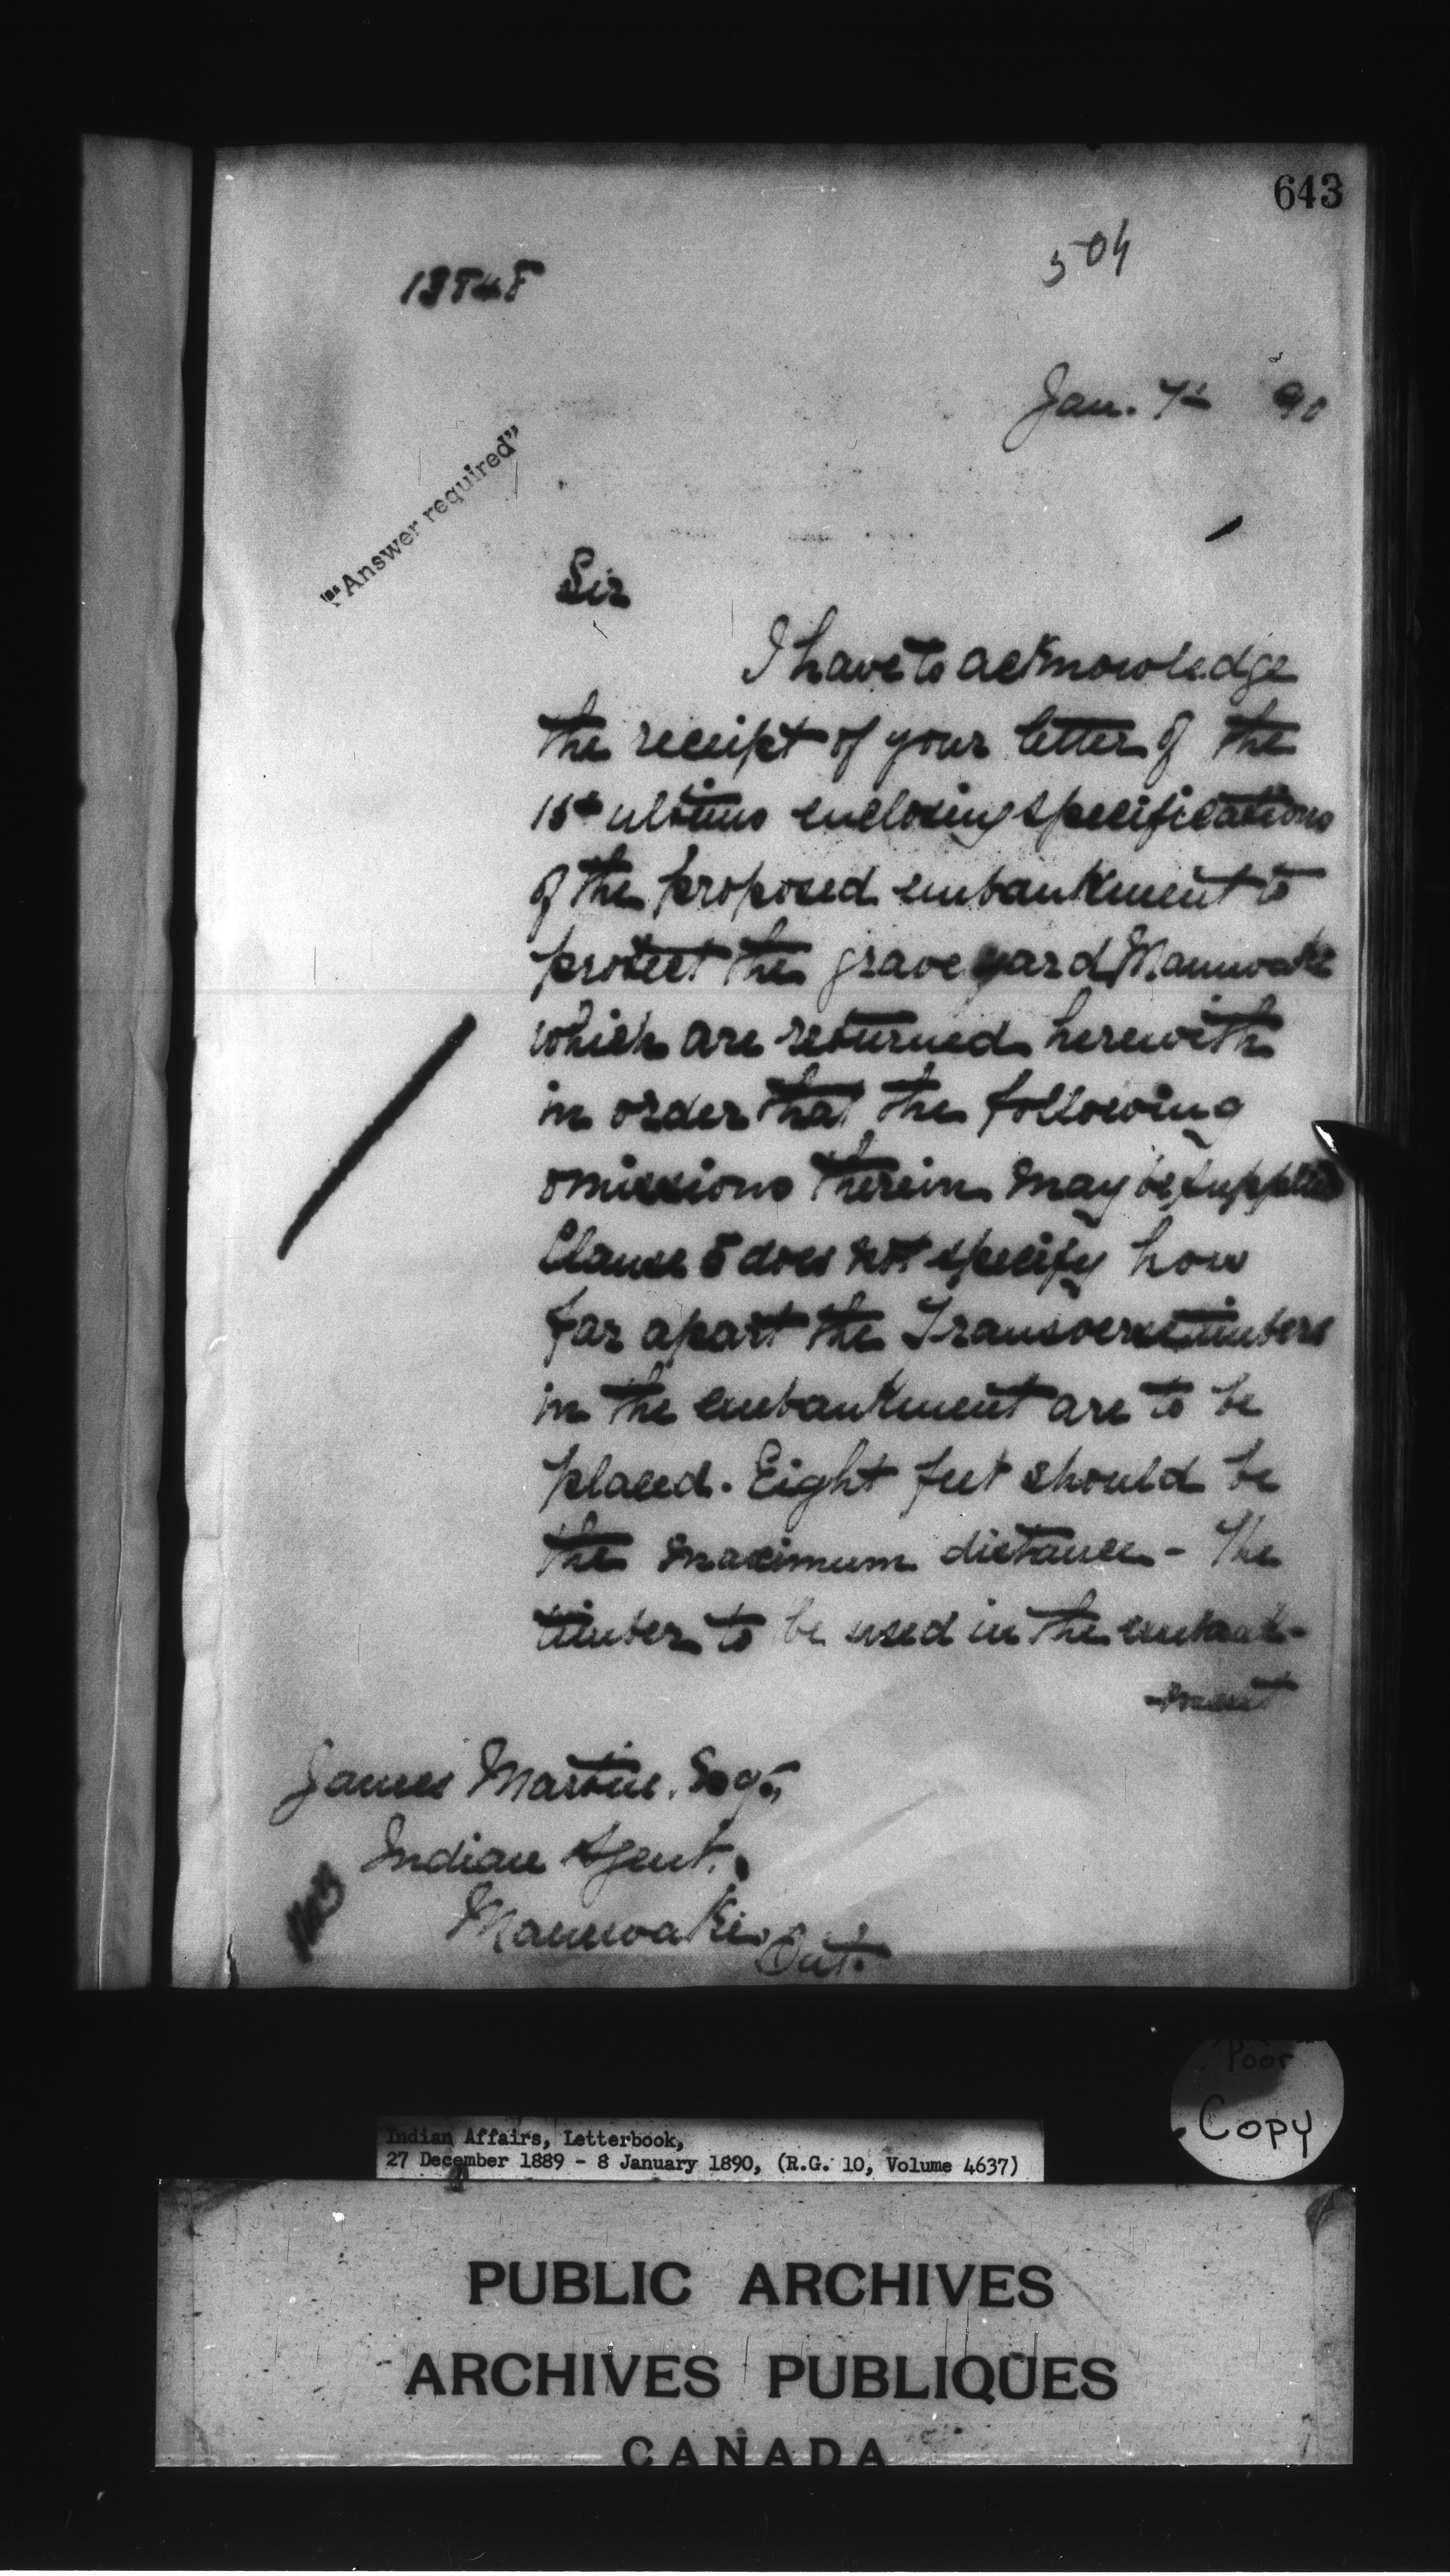 643
504
Jan. 7th 90
"Answer required"
Sir
I have to acknowledge
the receipt of your letter of the
15th ultimo enclosing specifications
of the proposed embankment to
protect the grave yard Maniwaki
which are returned herewith
in order that the following
omissions therein may be supplied
Clause 5 does not specify how
far apart the Transverse timbers
in the embankment are to be
placed. Eight feet should be
the maximum distance - The
timber to be used in the embank-
-ment
James Martin. Esq.,
Indian Agent.
Maniwaki.
Ont.
Poor
Copy
Indian Affairs, Letterbook,
27 December 1889 - 8 January 1890, (R.G. 10, Volume 4637)
PUBLIC ARCHIVES
ARCHIVES PUBLIQUES
CANADA